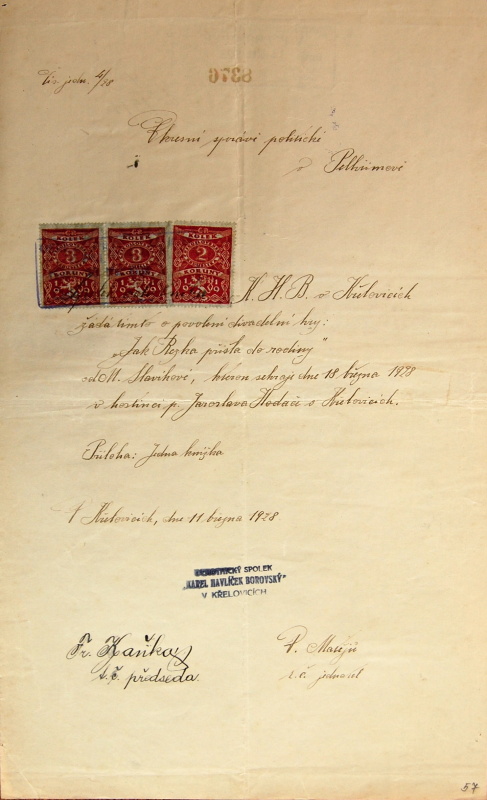 Čís. jedn. 4/28
8376
Okresní správě politické
v Pelhřimově
Č.S. KOLEK 3 KORUNY 1919
Č.S. KOLEK 3 KORUNY 1919
Č.S. KOLEK 2 KORUNY 1919
K. H. B. v Křelovicích
žádá tímto o povolení divadelní hry:
„Jak Řezka přišla do rodiny"
od M. Slavíkové, kterou sehraje dne 18 března 1928
v hostinci p. Jaroslava Hodače v Křelovicích.
Příloha: Jedna knížka
V Křelovicích, dne 11 března 1928
SPOLEK
„KAREL HAVLÍČEK BOROVSKÝ"
V KŘELOVICÍCH
Fr. Kaňka
t.č. předseda
P. Matějů
t.č. jednatel
57